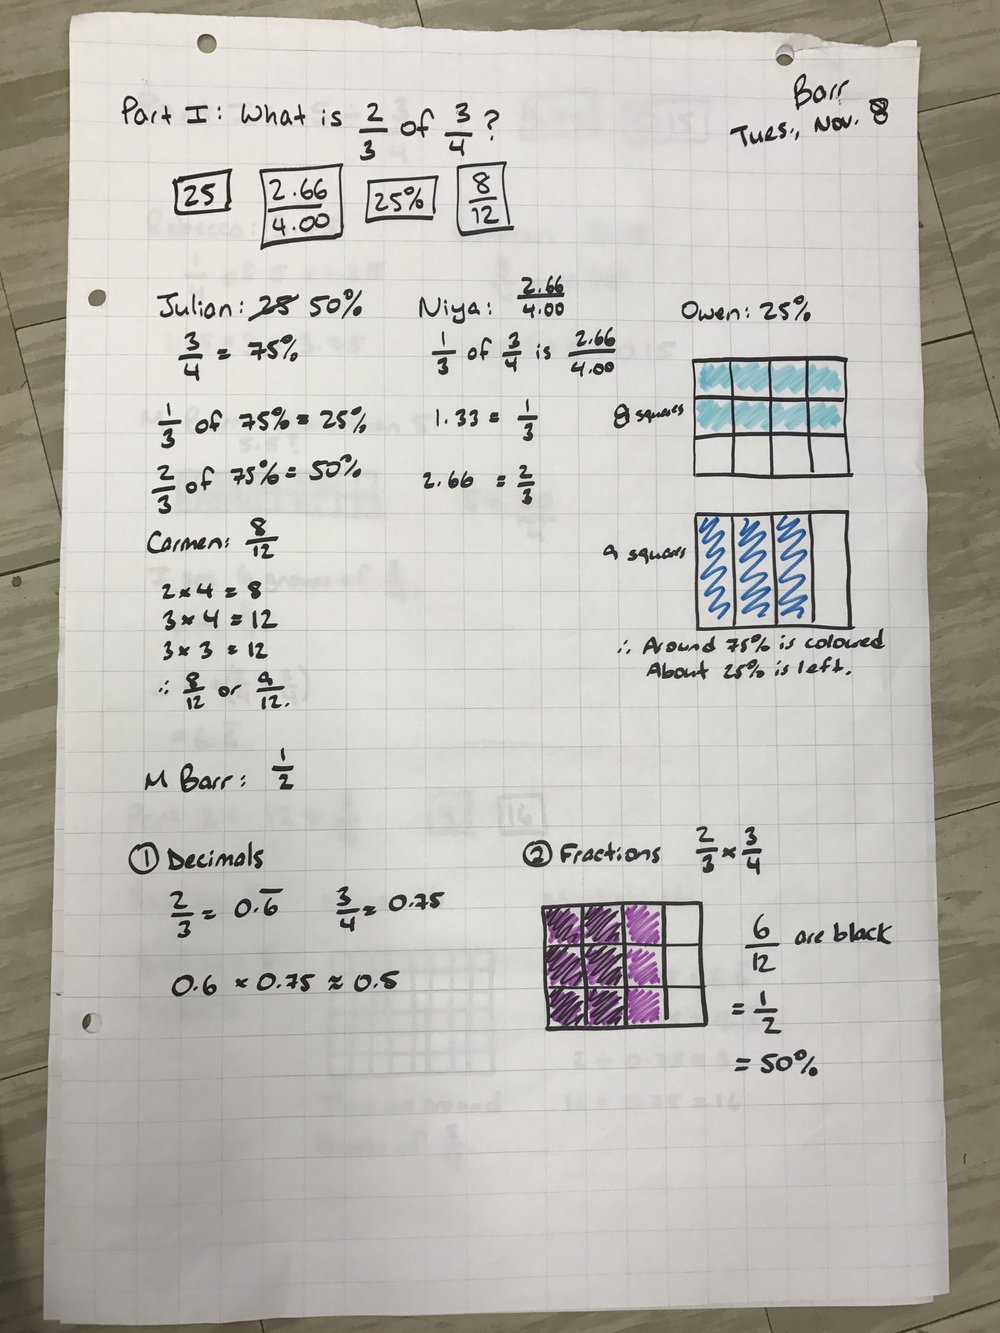 Part I: What is 2/3 of 3/4?
Barr
Tues., Nov. 8
25
2.66/4.00
25%
8/12
Julian: 25 50%
3/4 = 75%
1/3 of 75% = 25%
2/3 of 75% = 50%
Niya: 2.66/4.00
1/3 of 3/4 is 2.66/4.00
1.33 = 1/3
2.66 = 2/3
Owen: 25%
8 squares
9 squares
∴ Around 75% is coloured
About 25% is left.
Carmen: 8/12
2 × 4 = 8
3 × 4 = 12
3 × 3 = 12
∴ 8/12 or 9/12.
M Barr: 1/2
① Decimals
2/3 = 0.6̅ 3/4 = 0.75
0.6 × 0.75 ≈ 0.5
② Fractions 2/3 × 3/4
6/12 are black
= 1/2
= 50%